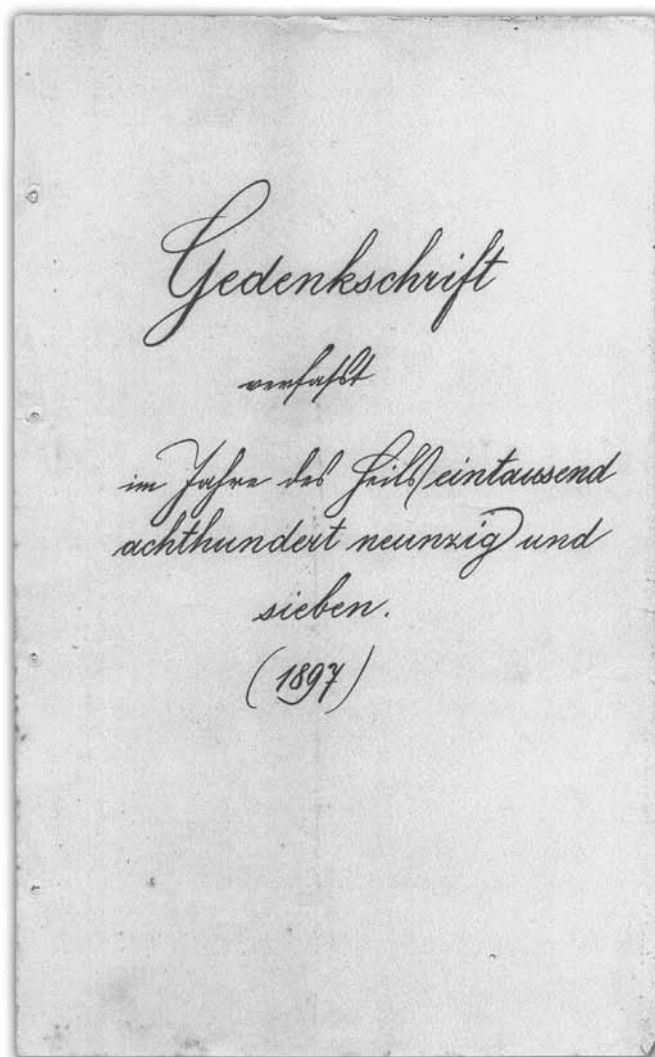 Gedenkschrift
verfaßt
im Jahre des Heils eintausend
achthundert neunzig und
sieben.
(1897)